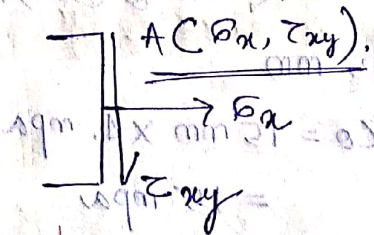 A(σx, τxy).
σx
τxy